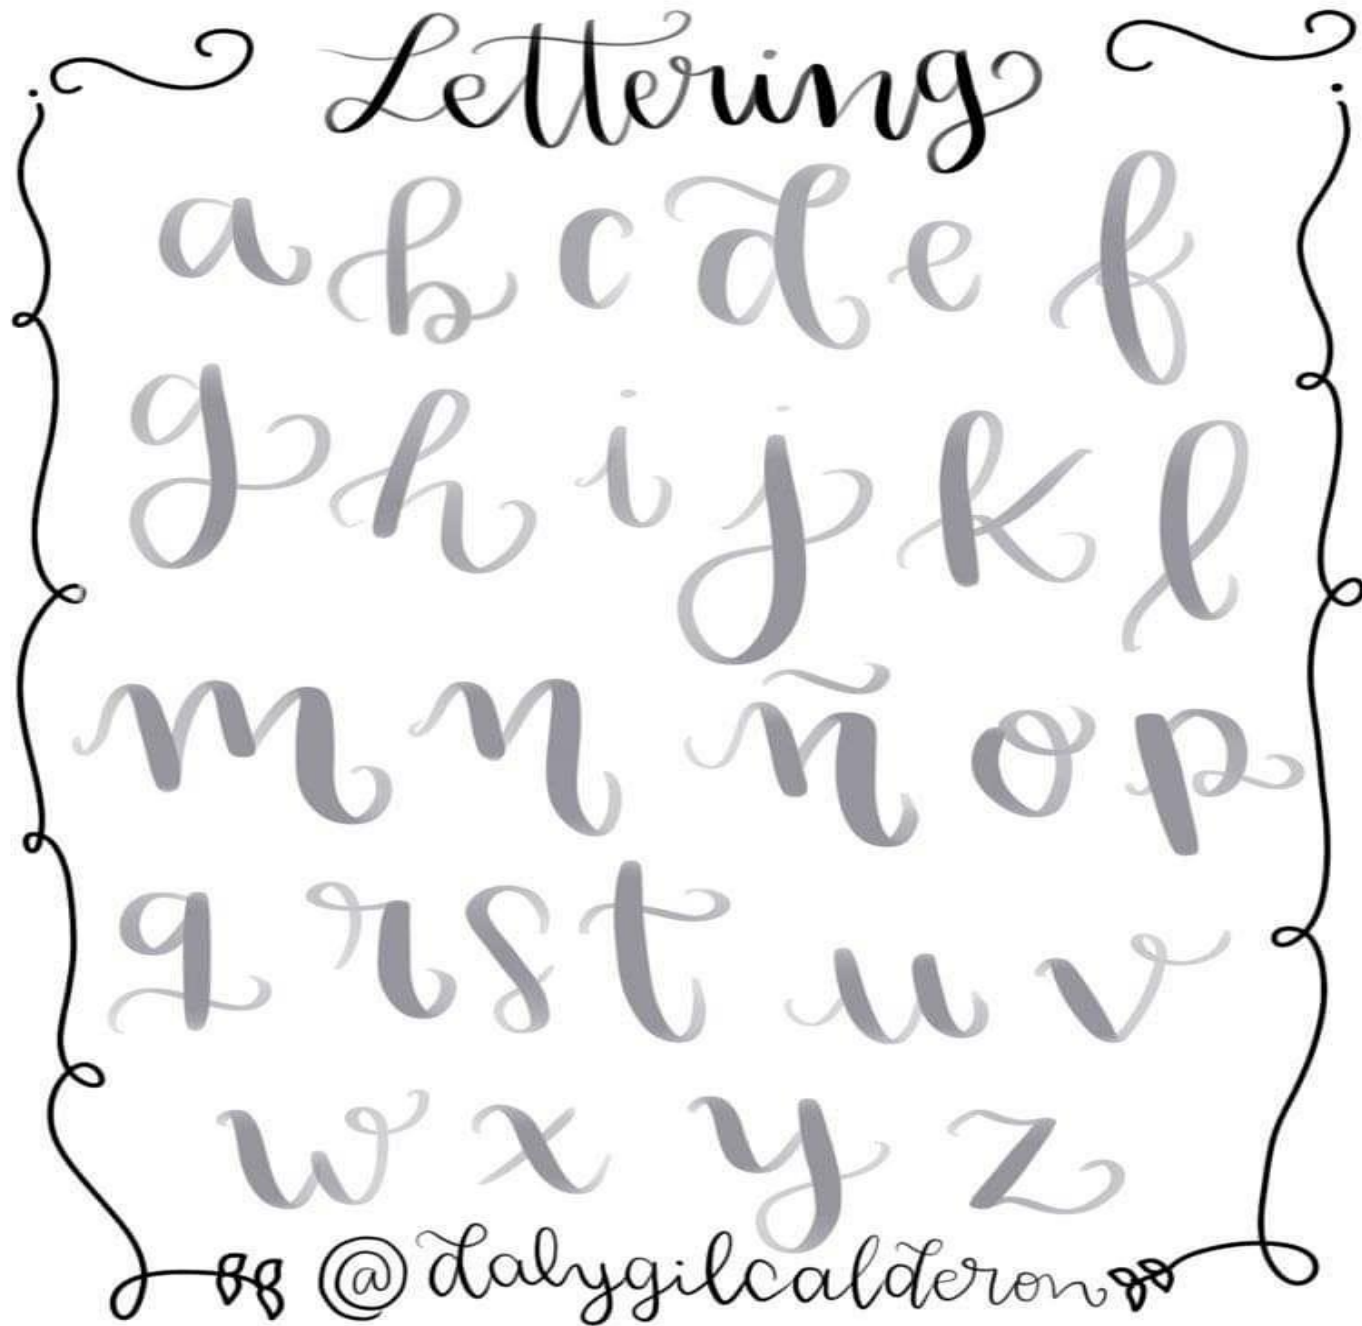 Lettering
a b c d e f
g h i j k l
m n ñ o p
q r s t u v
w x y z
@dalygilcalderon